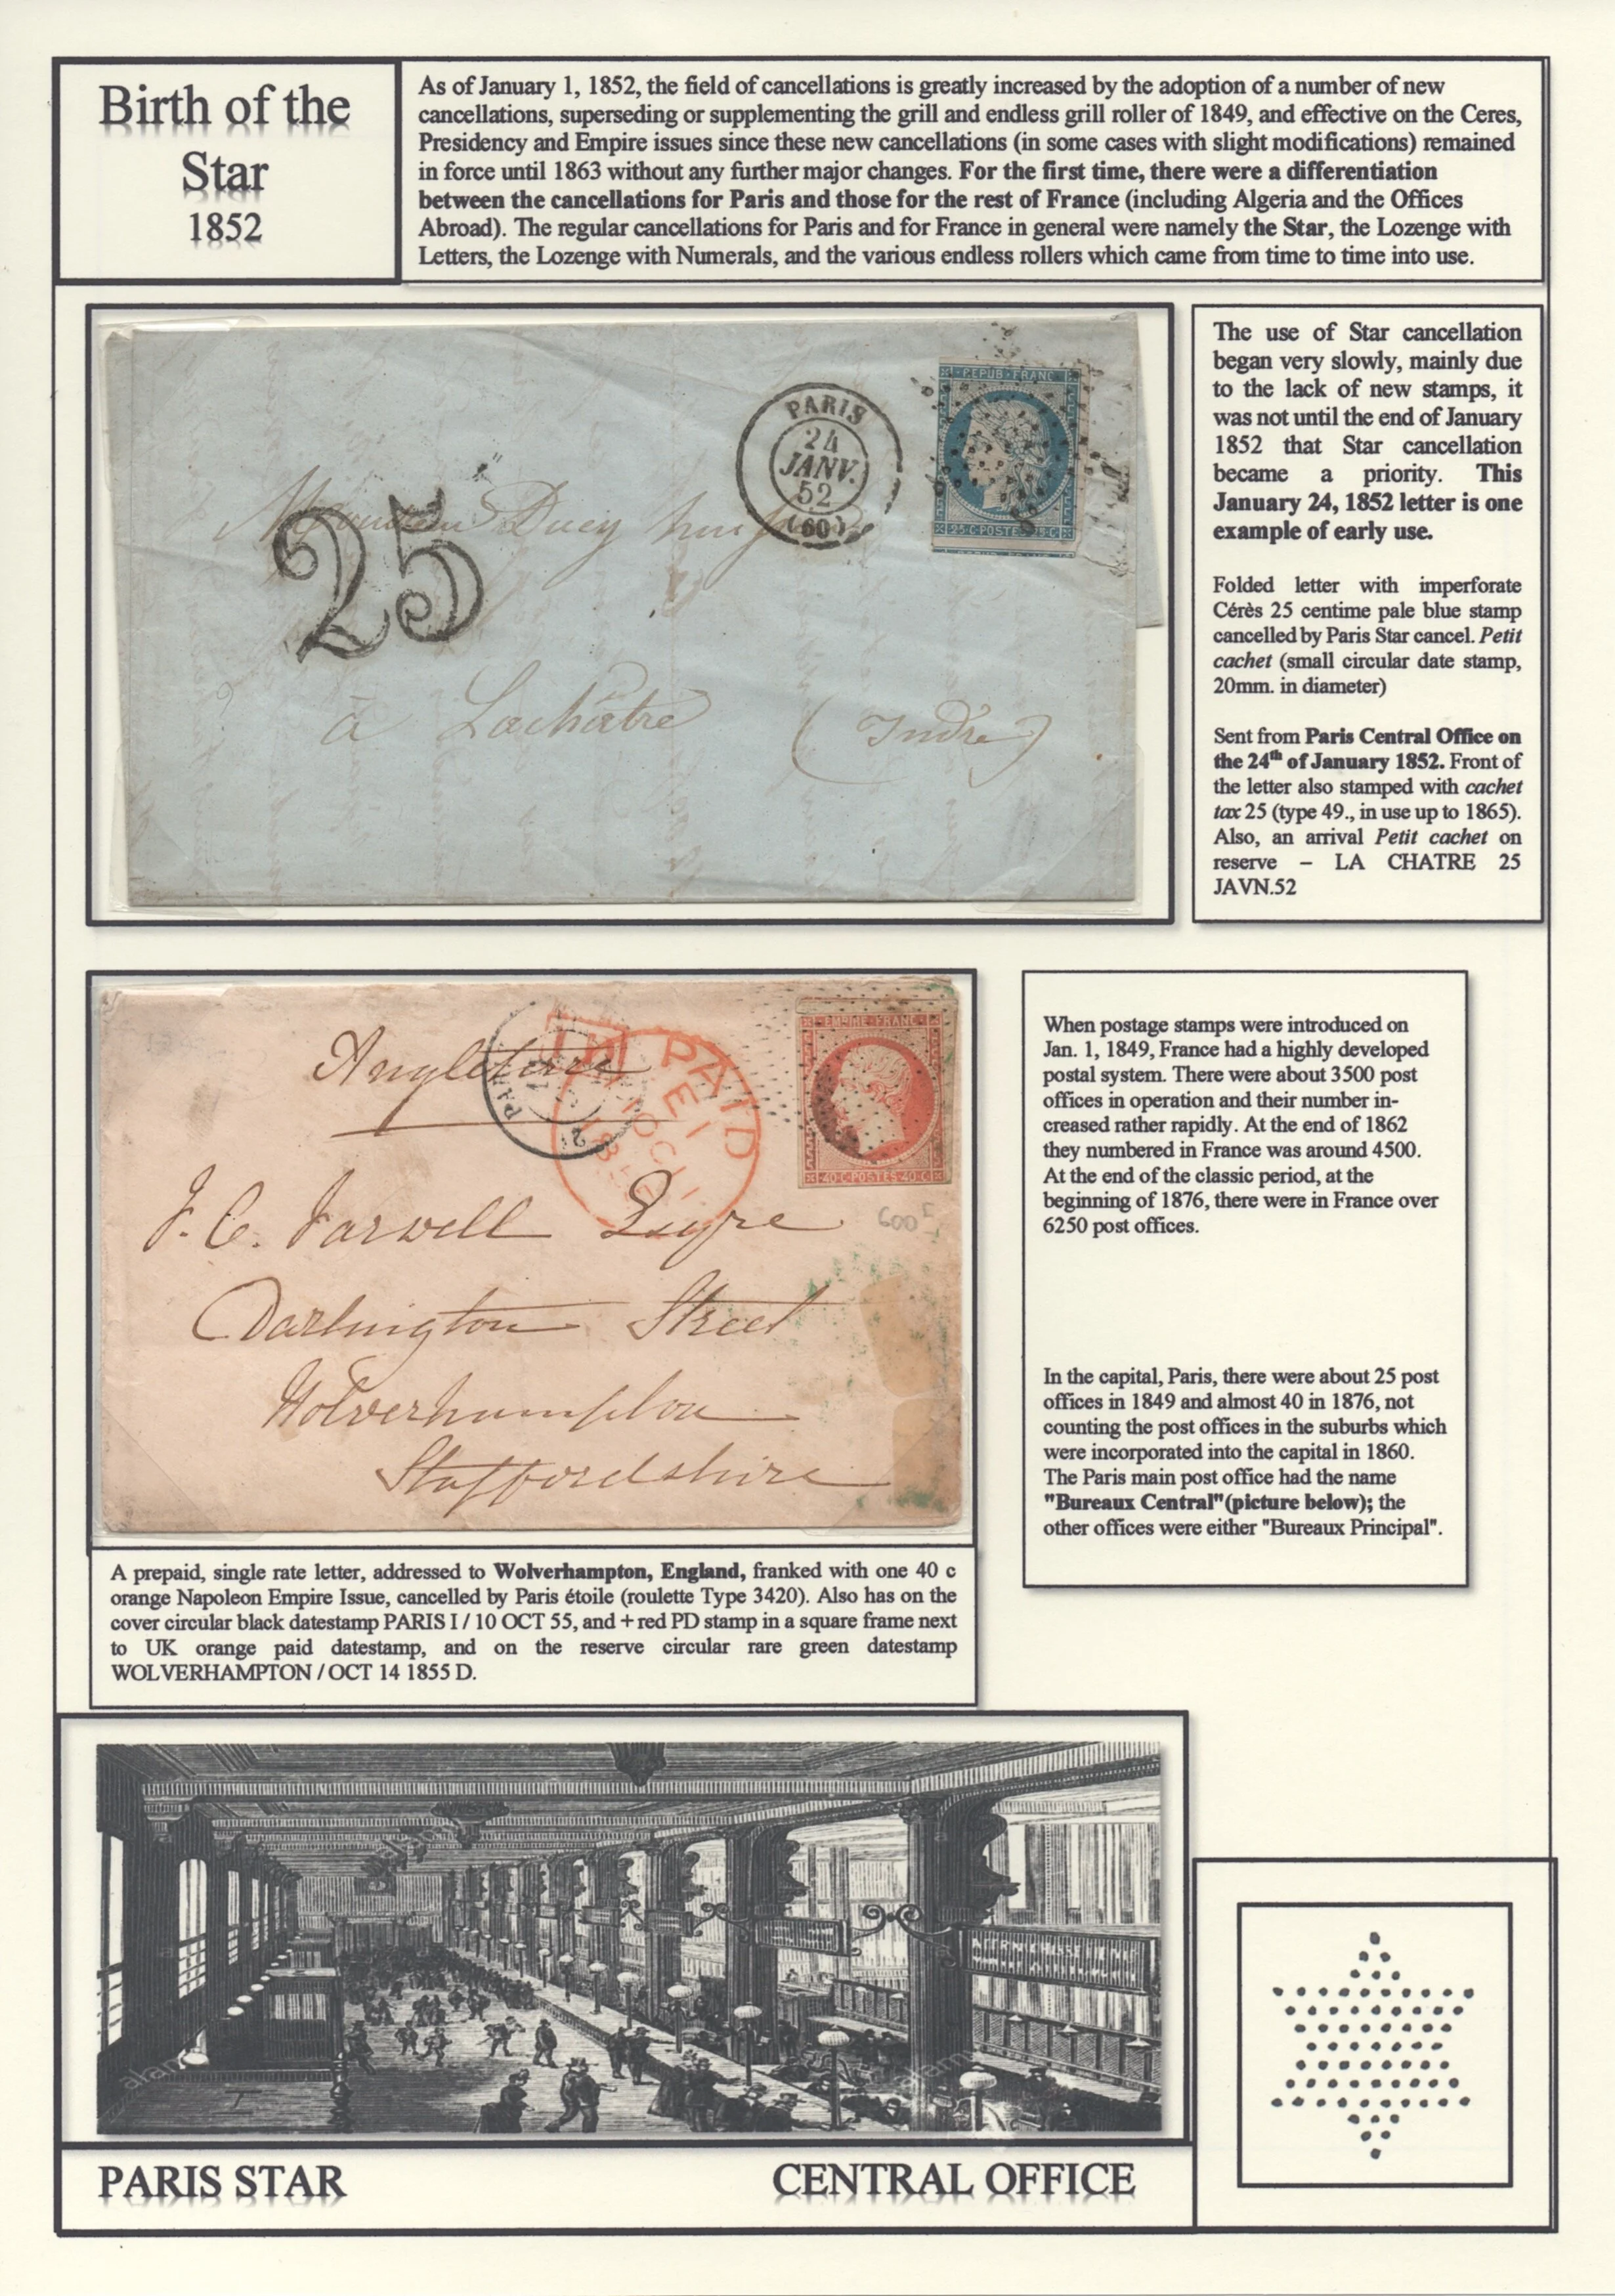 Birth of the
Star
1852
As of January 1, 1852, the field of cancellations is greatly increased by the adoption of a number of new
cancellations, superseding or supplementing the grill and endless grill roller of 1849, and effective on the Ceres,
Presidency and Empire issues since these new cancellations (in some cases with slight modifications) remained
in force until 1863 without any further major changes. For the first time, there were a differentiation
between the cancellations for Paris and those for the rest of France (including Algeria and the Offices
Abroad). The regular cancellations for Paris and for France in general were namely the Star, the Lozenge with
Letters, the Lozenge with Numerals, and the various endless rollers which came from time to time into use.
REPUB FRANC
25 C POSTES 25 C
PARIS
24
JANV.
52
(60)
25
à Lachâtre (Indre)
The use of Star cancellation
began very slowly, mainly due
to the lack of new stamps, it
was not until the end of January
1852 that Star cancellation
became a priority. This
January 24, 1852 letter is one
example of early use.
Folded letter with imperforate
Cérès 25 centime pale blue stamp
cancelled by Paris Star cancel. Petit
cachet (small circular date stamp,
20mm. in diameter)
Sent from Paris Central Office on
the 24th of January 1852. Front of
the letter also stamped with cachet
tax 25 (type 49., in use up to 1865).
Also, an arrival Petit cachet on
reserve – LA CHATRE 25
JAVN.52
Angleterre
PAID
EMPIRE FRANC
40 C POSTES 40 C
J. C. Farwell Esqre
600
Darlington Street
Wolverhampton
Staffordshire
A prepaid, single rate letter, addressed to Wolverhampton, England, franked with one 40 c
orange Napoleon Empire Issue, cancelled by Paris étoile (roulette Type 3420). Also has on the
cover circular black datestamp PARIS I / 10 OCT 55, and + red PD stamp in a square frame next
to UK orange paid datestamp, and on the reserve circular rare green datestamp
WOLVERHAMPTON / OCT 14 1855 D.
When postage stamps were introduced on
Jan. 1, 1849, France had a highly developed
postal system. There were about 3500 post
offices in operation and their number in-
creased rather rapidly. At the end of 1862
they numbered in France was around 4500.
At the end of the classic period, at the
beginning of 1876, there were in France over
6250 post offices.
In the capital, Paris, there were about 25 post
offices in 1849 and almost 40 in 1876, not
counting the post offices in the suburbs which
were incorporated into the capital in 1860.
The Paris main post office had the name
"Bureaux Central"(picture below); the
other offices were either "Bureaux Principal".
PARIS STAR
CENTRAL OFFICE